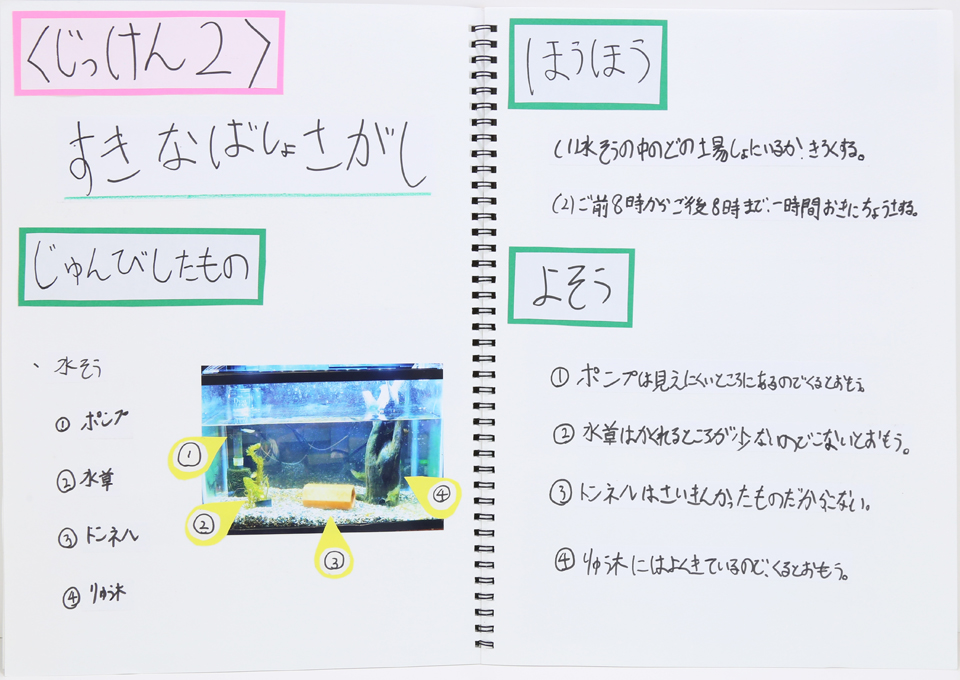 〈じっけん2〉
すきなばしょさがし
じゅんびしたもの
、水そう
①ポンプ
②水草
③トンネル
④りゅう木
①
②
③
④
ほうほう
(1)水そうの中のどの場しょにいるか、きろくする。
(2)ご前8時からご後8時まで、一時間おきにちょう社する。
よそう
①ポンプは見えにくいところにあるのでくるとおもう。
②水草はかくれるところが少ないのでこないとおもう。
③トンネルはさいきんかったものだからこない。
④りゅう木にはよくきているので、くるとおもう。